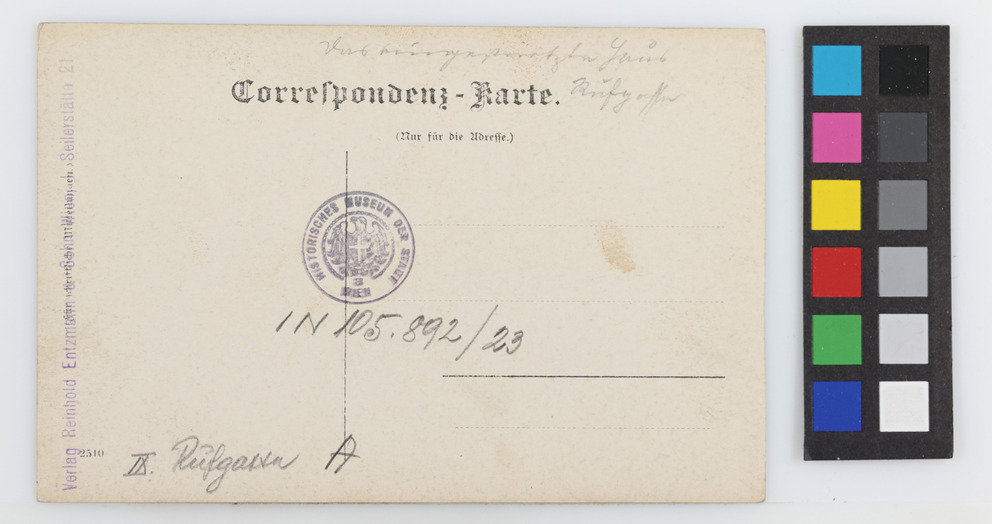 Das eingestürzte Haus
Rufgasse
Correspondenz-Karte.
(Nur für die Adresse.)
HISTORISCHES MUSEUM DER STADT
3
WIEN
IN 105.892/23
IX. Rufgasse A
2510
Verlag Reinhold Entzmann Seilerstätte 21